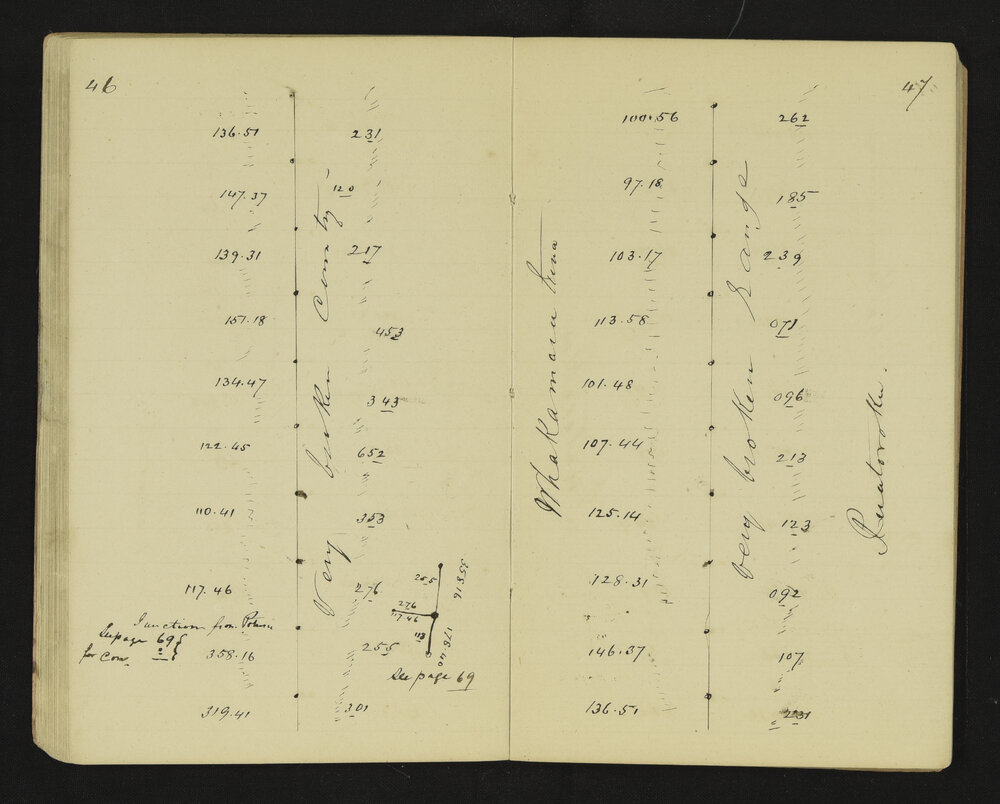 46
136.51 231
147.37 120
139.31 217
151.18 453
134.47 343
122.45 652
110.41 353
117.46 276
Junction from
See page 69
for Con
358.16 255
319.41 301
Very broken Country
255 358.16
276
117.46
178.40
See page 69
47
100.56 262
97.18 185
103.17 239
113.58 071
101.48 096
107.44 213
125.14 123
128.31 092
146.37 107
136.51 231
Very broken Range